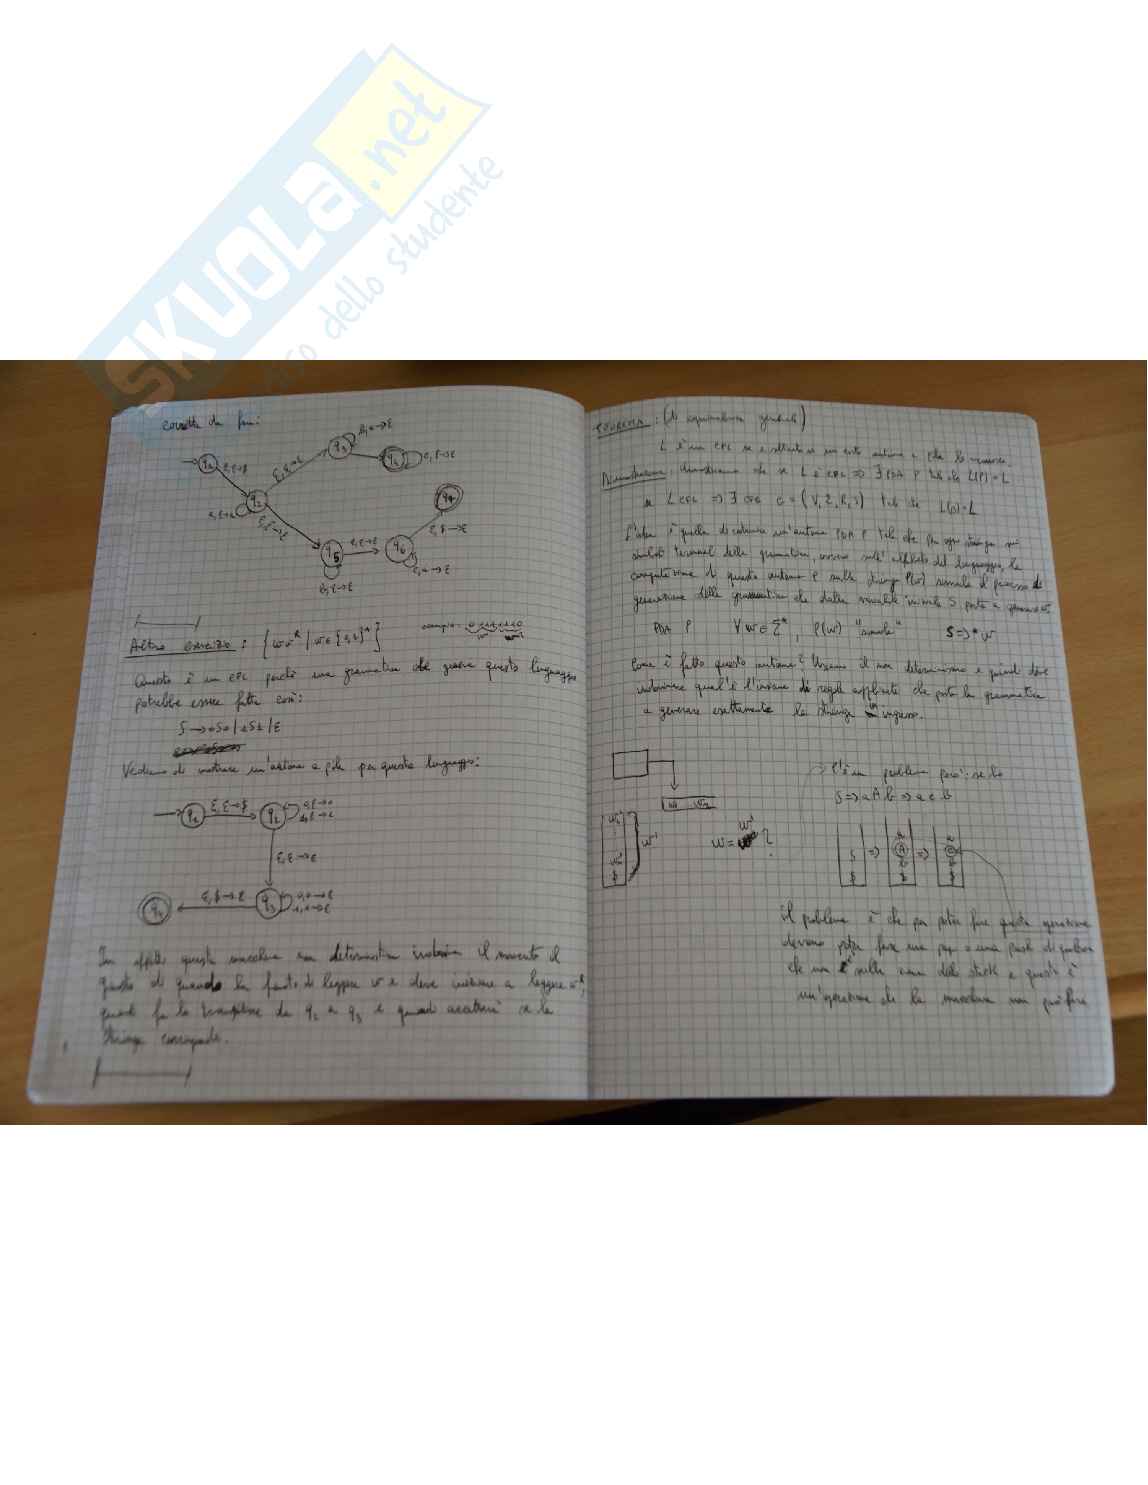 SKUOLA.net
dello studente
corretta da fare:
q1
ε,ε→$
q2
q3
q4
q5
q6
q7
Altro esercizio: {wwᴿ | w ∈ {0,1}*}
esempio:
Questo è un CFL perché una grammatica che genera questo linguaggio
potrebbe essere fatta così:
S → 0S0 | 1S1 | ε
Vediamo di mostrare un'automa a pila per questo linguaggio:
q1 ε,ε→$ q2 0,ε→0
1,ε→1
ε,ε→ε
q4 ε,$→ε q3 0,0→ε
1,1→ε
In effetti questa macchina non deterministica indovina il momento
giusto di quando ha finito di leggere w e deve iniziare a leggere wᴿ,
quindi fa la transizione da q2 a q3 e quindi accetterà se la
stringa corrisponde.
TEOREMA: (di equivalenza generale)
L è un CFL se e soltanto se un certo automa a pila lo riconosce.
Dimostrazione: dimostriamo che se L è CFL => ∃ PDA P tale che L(P)=L
se L CFL => ∃ CFG G = (V,Σ,R,S) tale che L(G)=L
L'idea è quella di costruire un'automa PDA P tale che per ogni stringa sui
simboli terminali della grammatica, ovvero sull'alfabeto del linguaggio, la
computazione di questo automa P sulla stringa P(w) simula il processo di
generazione della grammatica che dalla variabile iniziale S porta a generare w.
PDA P ∀w∈Σ*, P(w) "simula" S=>*w
Come è fatto questo automa? Usiamo il non determinismo e quindi deve
indovinare qual'è l'insieme di regole applicate che porta la grammatica
a generare esattamente la stringa in ingresso.
C'è un problema però: se ho
S => aAb => acb
w'
w = w' ?
S
$
=>
A
b
$
=>
b
$
il problema è che per poter fare questa operazione
devono poter fare una pop o una push di qualcosa
che non è sulla cima dello stack e questa è
un'operazione che la macchina non può fare